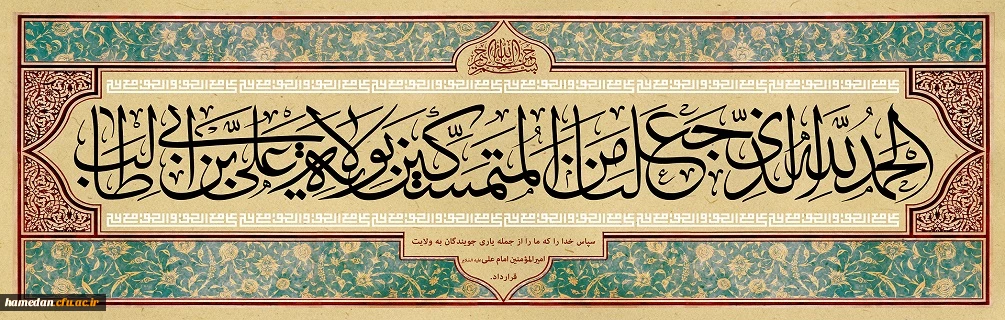 بسم الله الرحمن الرحیم
الحمدلله الذی جعلنا من المتمسکین بولایة علی بن ابی طالب
سپاس خدا را که ما را از جمله یاری جویندگان به ولایت
امیرالمؤمنین امام علی علیه السلام
قرارداد.
hamedan.cfu.ac.ir